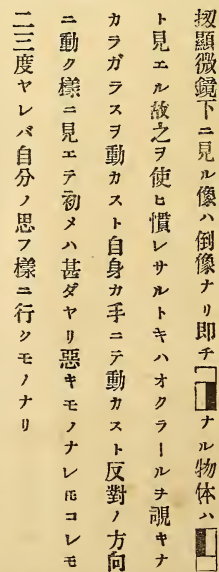 扨顯微鏡下ニ見ル像ハ倒像ナリ卽チ ナル物体ハ
ト見エル故之ヲ使ヒ慣レサルトキハオクラールヲ覗キナ
カラガラスヲ動カスト自身カ手ニテ動カスト反對ノ方向
ニ動ク樣ニ見エテ初メハ甚ダヤリ惡キモノナレ𪜈コレモ
二三度ヤレバ自分ノ思フ樣ニ行クモノナリ